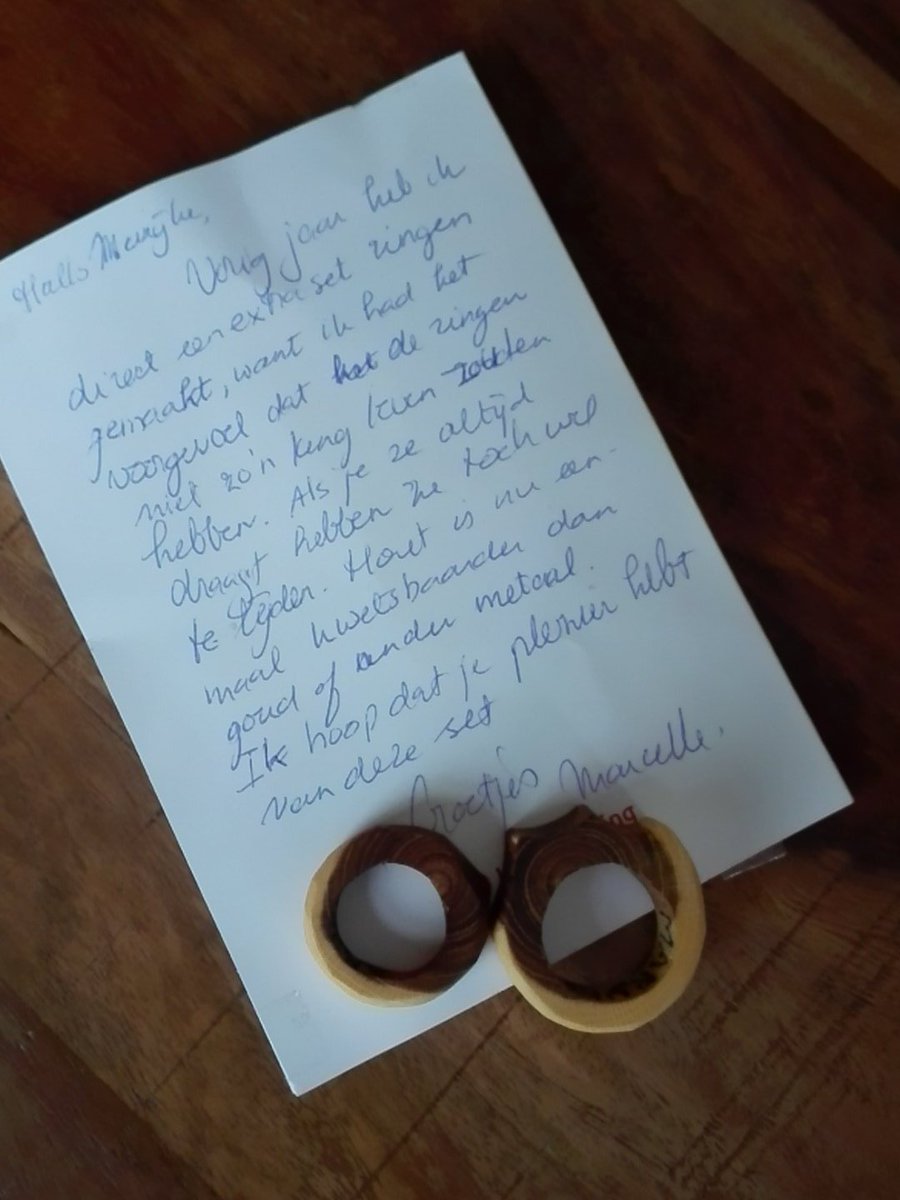 Hallo Marijke,
Vorig jaar heb ik
direct een extra set ringen
gemaakt, want ik had het
voorgevoel dat het de ringen
niet zo'n lang leven zouden
hebben. Als je ze altijd
draagt hebben ze toch wel
te lijden. Hout is nu een-
maal kwetsbaarder dan
goud of ander metaal.
Ik hoop dat je plezier hebt
van deze set
Groetjes Marcelle.